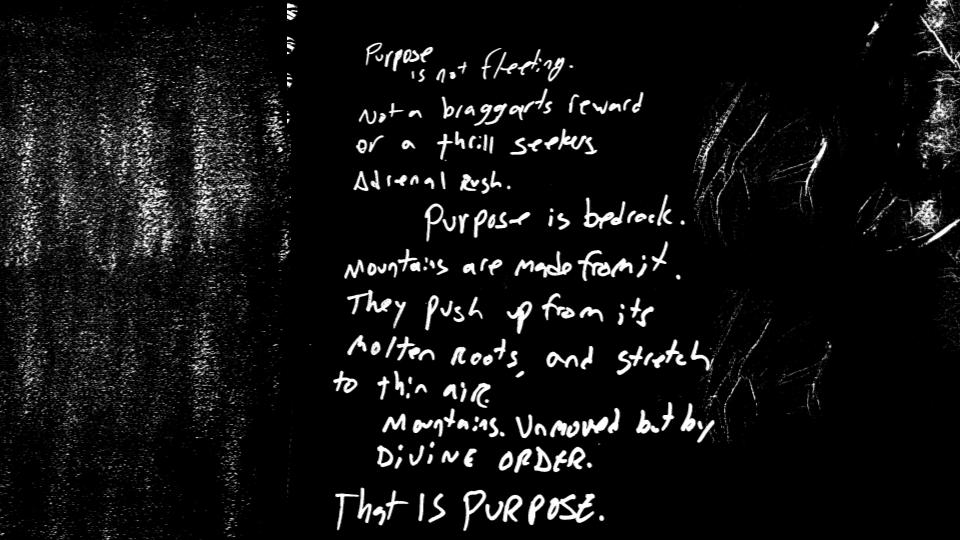 Purpose
is not fleeting.
Not a braggarts reward
or a thrill seekers
Adrenal Rush.
Purpose is bedrock.
Mountains are made from it.
They push up from its
molten roots, and stretch
to thin air.
Mountains. Unmoved but by
DIVINE ORDER.
That IS PURPOSE.